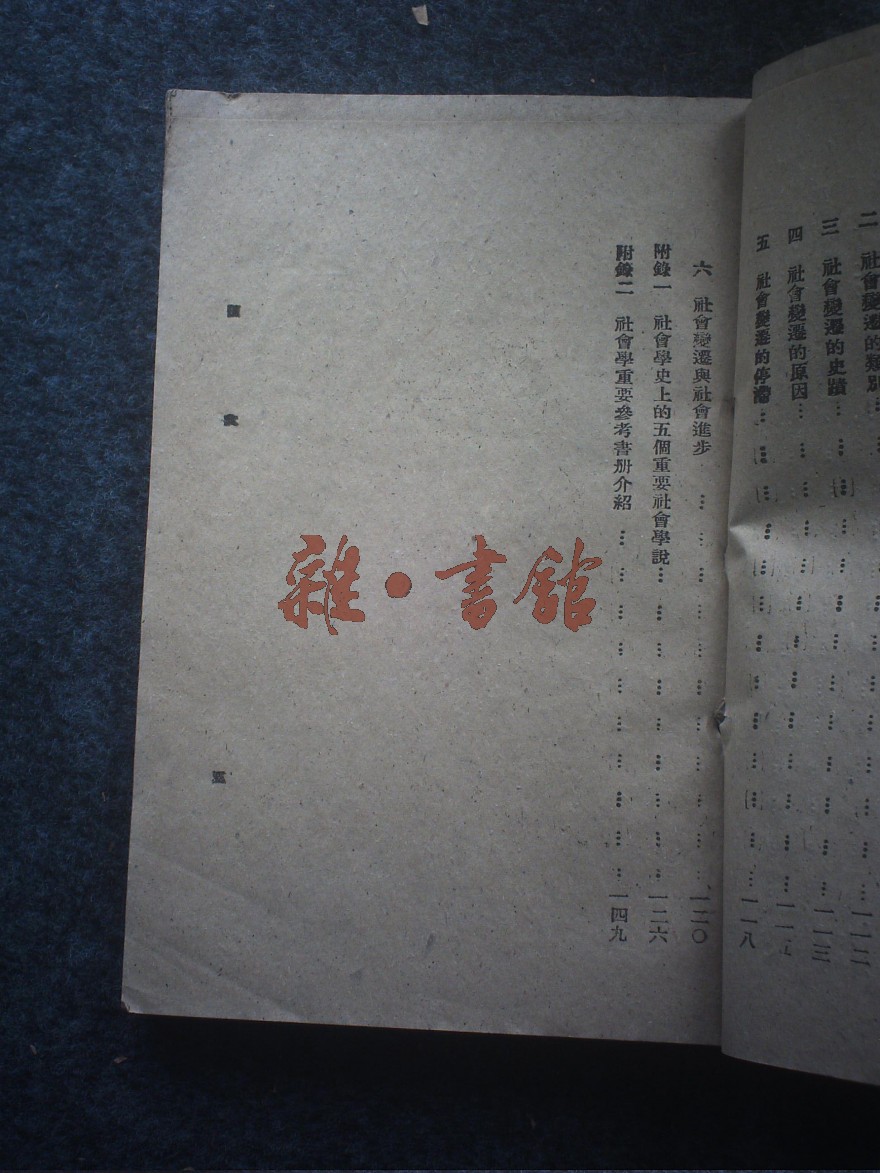 二 社會變遷的類別 … 一一二
三 社會變遷的史蹟 … 一一三
四 社會變遷的原因
五 社會變遷的停滯 … 一一八
六 社會變遷與社會進步 … 一二〇
附錄一 社會學史上的五個重要社會學說 … 一二六
附錄二 社會學重要參考書册介紹 … 一四九
五
雜·書館